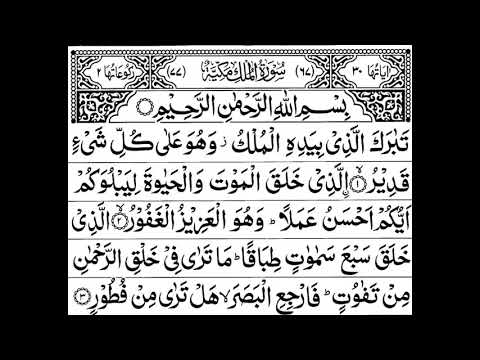 اٰیَاتُهَا ٣٠ (٦٧) سُوْرَةُ الْمُلْكِ مَكِّيَّةٌ (٧٧) رُكُوْعَاتُهَا ٢
بِسْمِ اللّٰهِ الرَّحْمٰنِ الرَّحِيْمِ
تَبٰرَكَ الَّذِىْ بِيَدِهِ الْمُلْكُ ز وَهُوَ عَلٰى كُلِّ شَىْءٍ
قَدِيْرُ ۙ﴿١﴾ اِ۟لَّذِىْ خَلَقَ الْمَوْتَ وَالْحَيٰوةَ لِيَبْلُوَكُمْ
اَيُّكُمْ اَحْسَنُ عَمَلًا ؕ وَهُوَ الْعَزِيْزُ الْغَفُوْرُ ۙ﴿٢﴾ الَّذِىْ
خَلَقَ سَبْعَ سَمٰوٰتٍ طِبَاقًا ؕ مَا تَرٰى فِىْ خَلْقِ الرَّحْمٰنِ
مِنْ تَفٰوُتٍ ؕ فَارْجِعِ الْبَصَرَ ۙ هَلْ تَرٰى مِنْ فُطُوْرٍ ﴿٣﴾